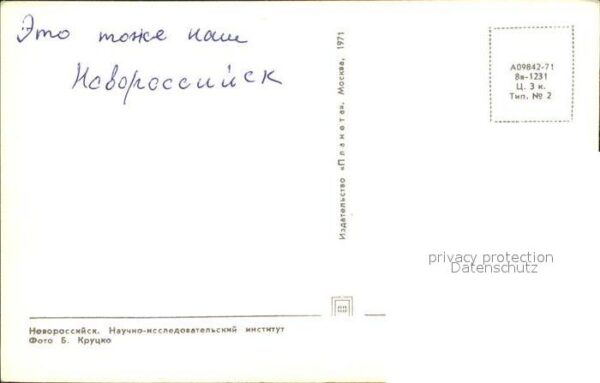 Это тоже наш
Новороссийск
Издательство «Планета». Москва, 1971
А09842-71
8в-1231
Ц. 3 к.
Тип. № 2
privacy protection
Datenschutz
Новороссийск. Научно-исследовательский институт
Фото Б. Круцко